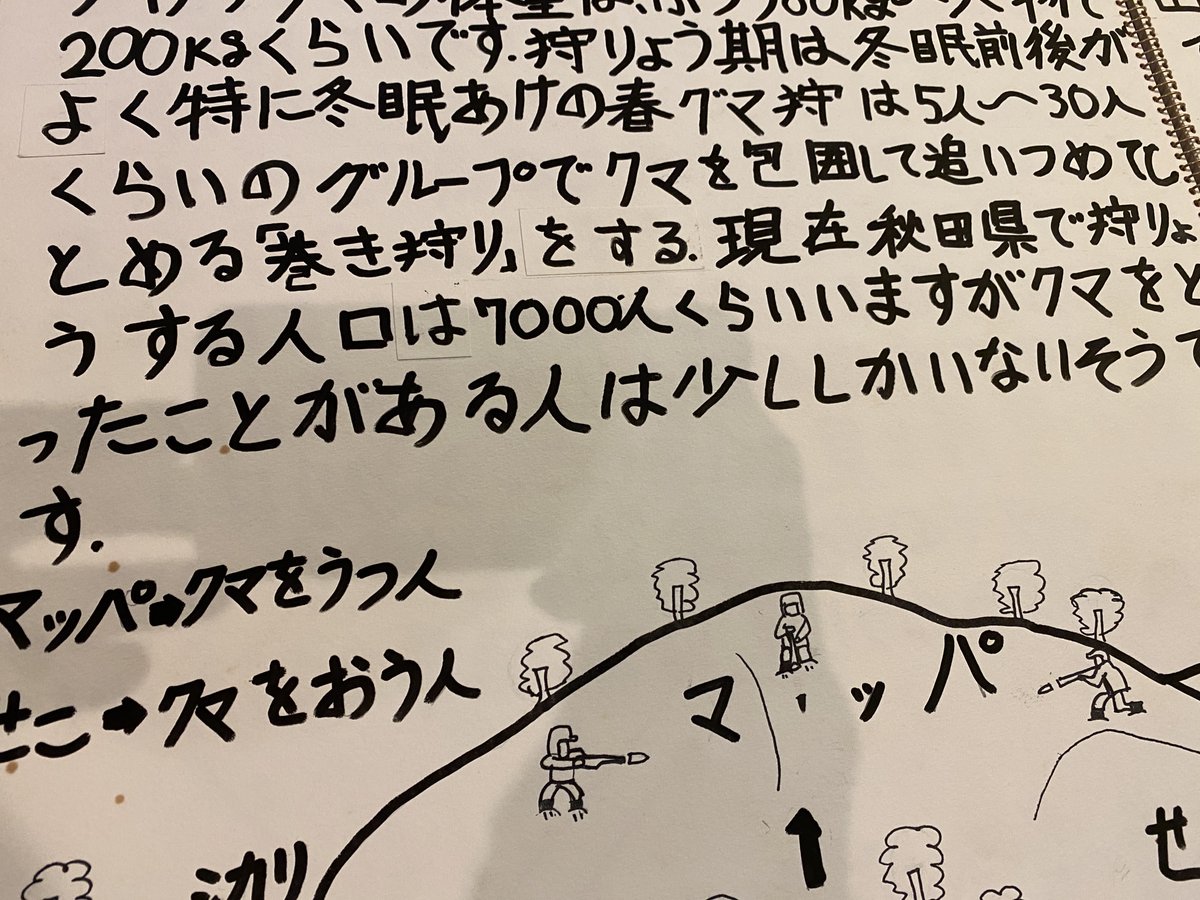 200kgくらいです.狩りょう期は冬眠前後が
よく特に冬眠あけの春グマ狩は5人〜30人
くらいのグループでクマを包囲して追いつめてし
とめる「巻き狩り」をする.現在秋田県で狩りょ
うする人口は7000人くらいいますがクマをと
ったことがある人は少ししかいないそうで
す.
マッパ➡クマをうつ人
せこ➡クマをおう人
マッパ
シカリ
せ